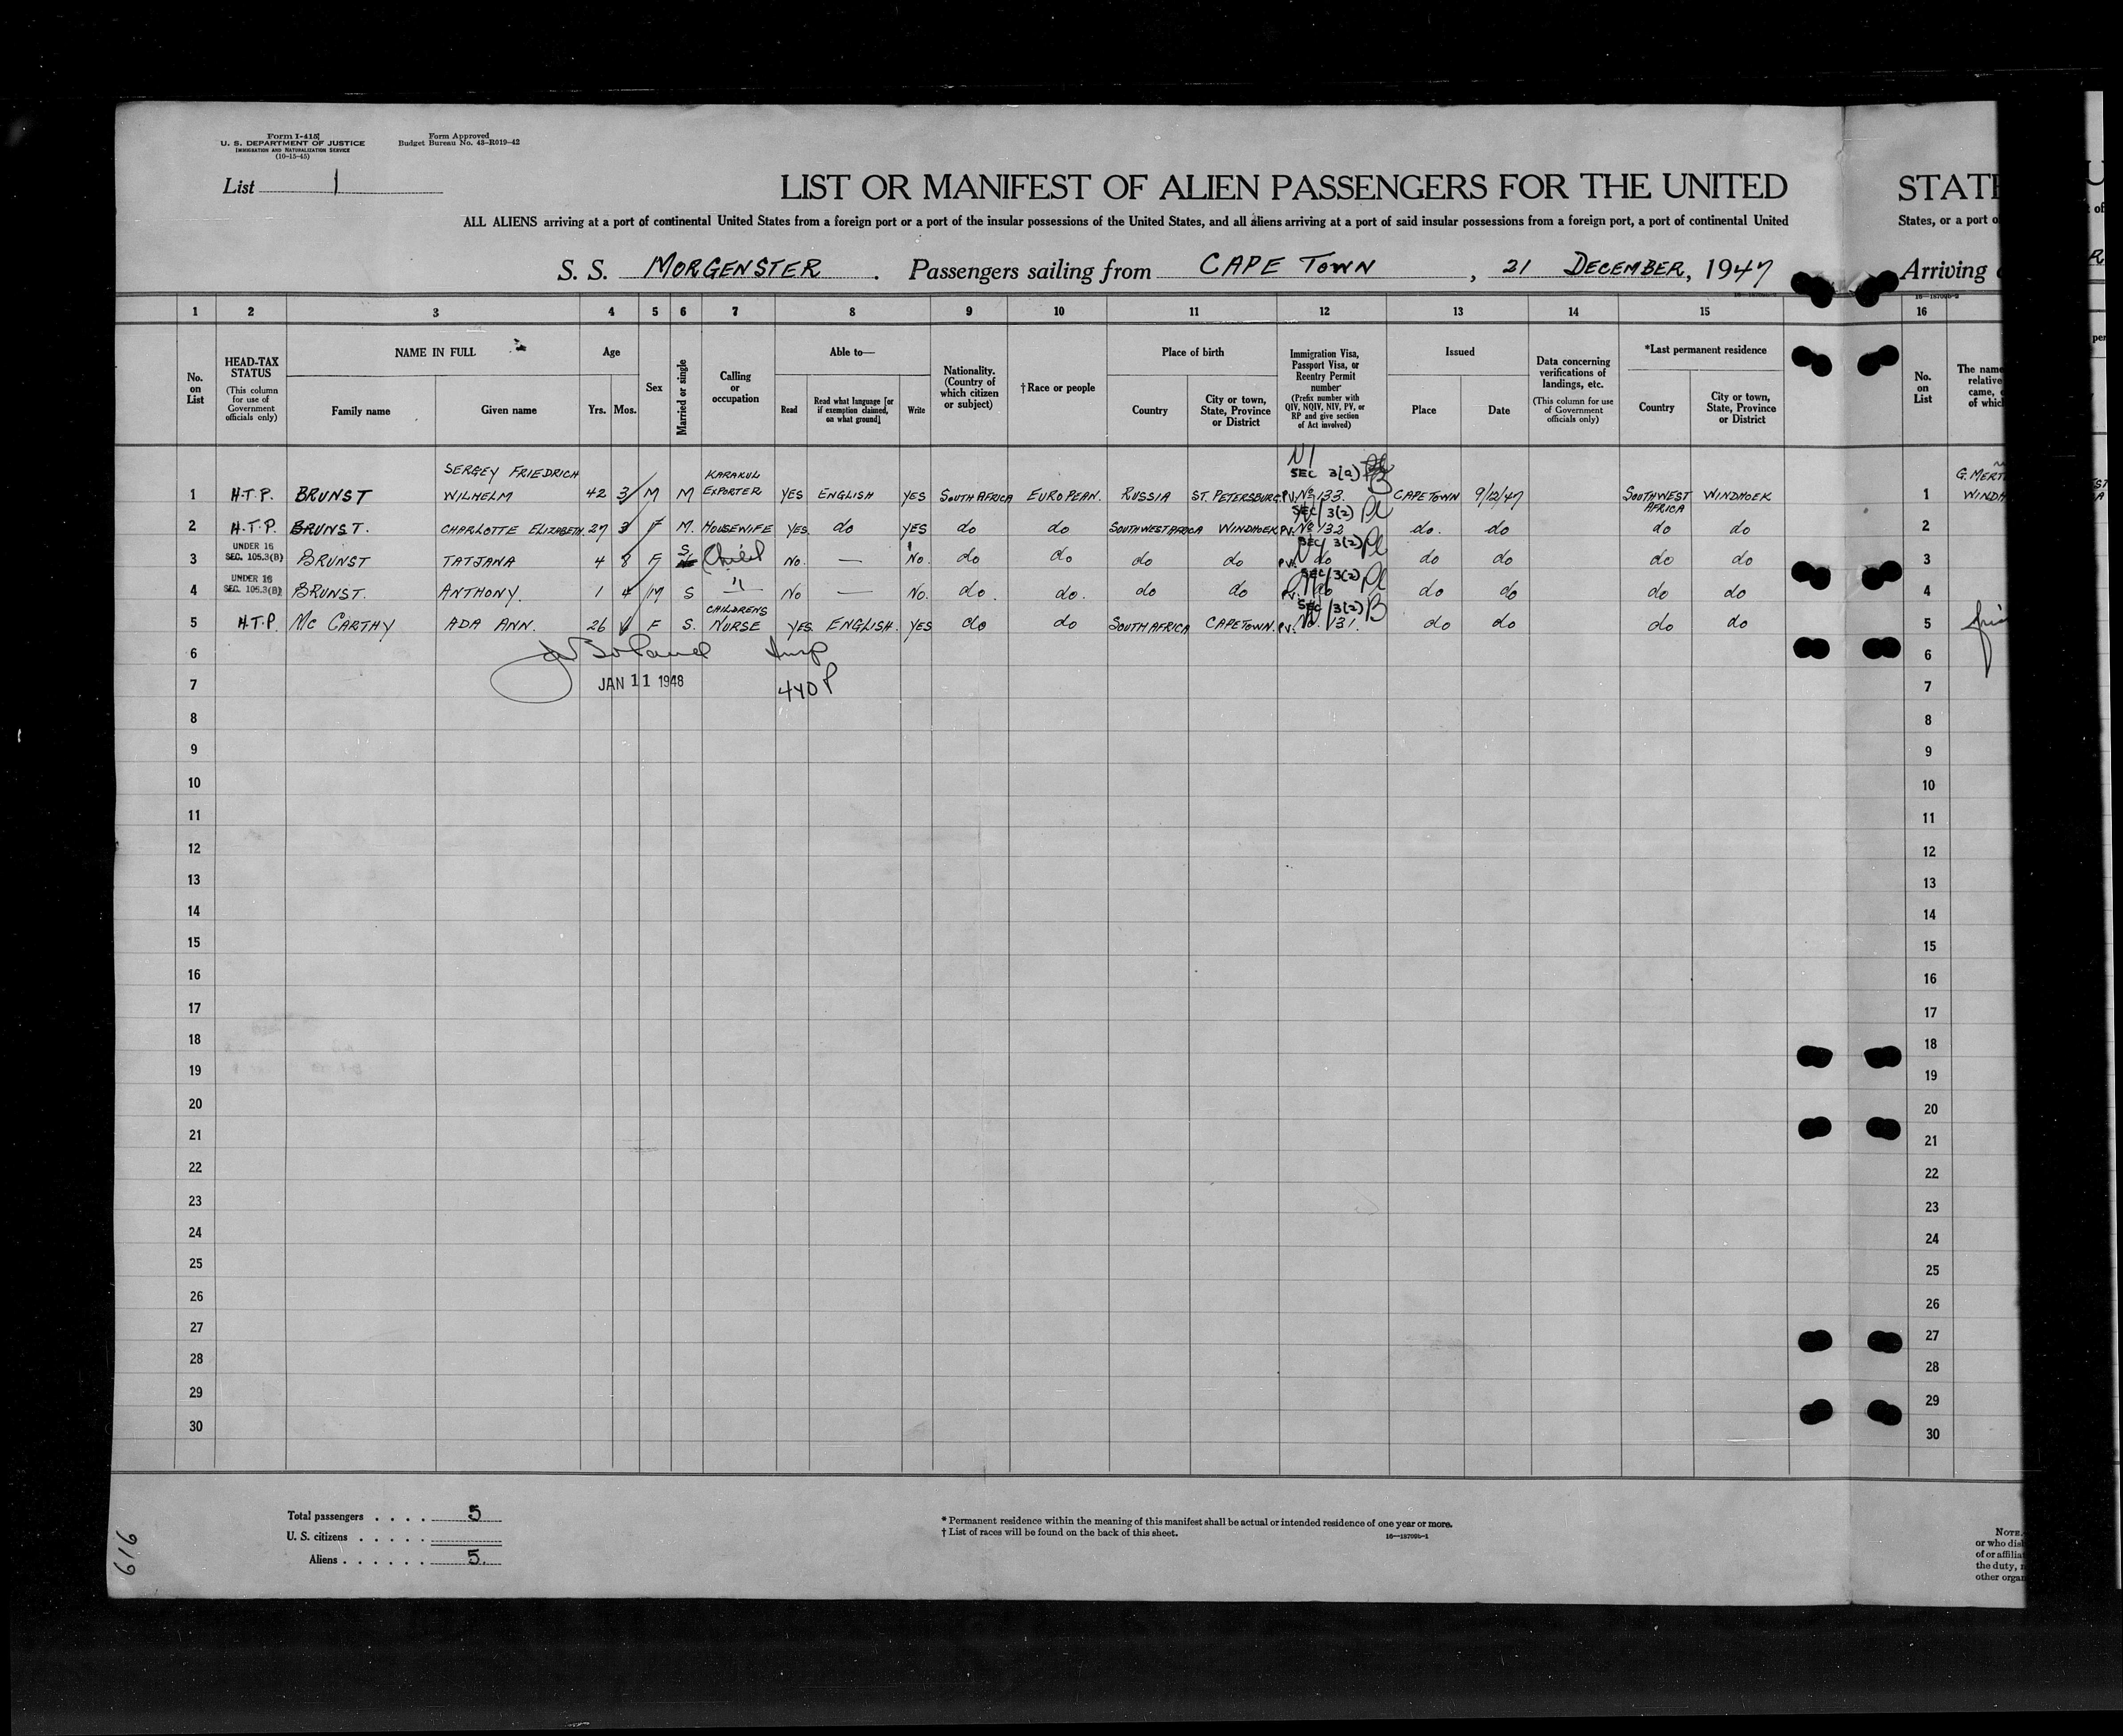 Form I-415
U. S. DEPARTMENT OF JUSTICE
IMMIGRATION AND NATURALIZATION SERVICE
(10-15-45)
Form Approved
Budget Bureau No. 43-R019-42
List 1
LIST OR MANIFEST OF ALIEN PASSENGERS FOR THE UNITED
STATE
ALL ALIENS arriving at a port of continental United States from a foreign port or a port of the insular possessions of the United States, and all aliens arriving at a port of said insular possessions from a foreign port, a port of continental United
States, or a port o
S. S. MORGENSTER. Passengers sailing from CAPE TOWN, 21 DECEMBER, 1947
Arriving
1 2 3 4 5 6 7 8 9 10 11 12 13 14 15 16
No. on List
HEAD-TAX STATUS
(This column for use of Government officials only)
NAME IN FULL
Family name
Given name
Age
Yrs. Mos.
Sex
Married or single
Calling or occupation
Able to—
Read
Read what language [or if exemption claimed, on what ground]
Write
Nationality. (Country of which citizen or subject)
†Race or people
Place of birth
Country
City or town, State, Province or District
Immigration Visa, Passport Visa, or Reentry Permit number
(Prefix number with QIV, NQIV, NIV, PV, or RP and give section of Act involved)
Issued
Place
Date
Data concerning verifications of landings, etc.
(This column for use of Government officials only)
*Last permanent residence
Country
City or town, State, Province or District
No. on List
The name
relative
came,
of which
SERGEY FRIEDRICH KARAKUL SEC 3(2)
1 H.T.P. BRUNST WILHELM 42 3 M M EXPORTER YES ENGLISH YES SOUTH AFRICA EUROPEAN. RUSSIA ST. PETERSBURG P.V. No 133. CAPETOWN 9/12/47 SOUTHWEST AFRICA WINDHOEK 1 G. MERT WINDH
SEC 3(2)
2 H.T.P. BRUNST. CHARLOTTE ELIZABETH 27 3 F M. HOUSEWIFE YES do YES do do SOUTHWEST AFRICA WINDHOEK P.V. No 132 do. do do do 2
UNDER 16 SEC 3(2)
3 SEC. 105.3(B) BRUNST TATJANA 4 8 F S Child No. — No. do do do do PV. do do do do do 3
UNDER 16 SEC 3(2)
4 SEC. 105.3(B) BRUNST. ANTHONY. 1 4 M S " No — No. do. do. do do do do do do 4
CHILDRENS SEC 3(2)
5 H.T.P. Mc CARTHY ADA ANN. 26 F S. NURSE YES ENGLISH. YES do do SOUTH AFRICA CAPETOWN. P.V. No. 131. do do do do 5
6 Insp 6
7 JAN 11 1948 440P 7
8 8
9 9
10 10
11 11
12 12
13 13
14 14
15 15
16 16
17 17
18 18
19 19
20 20
21 21
22 22
23 23
24 24
25 25
26 26
27 27
28 28
29 29
30 30
Total passengers . . . . 5
U. S. citizens . . . . .
Aliens . . . . . . 5.
* Permanent residence within the meaning of this manifest shall be actual or intended residence of one year or more.
† List of races will be found on the back of this sheet.
16—18700b-1
NOTE.
or who
of or affilia
the duty,
other organ
616